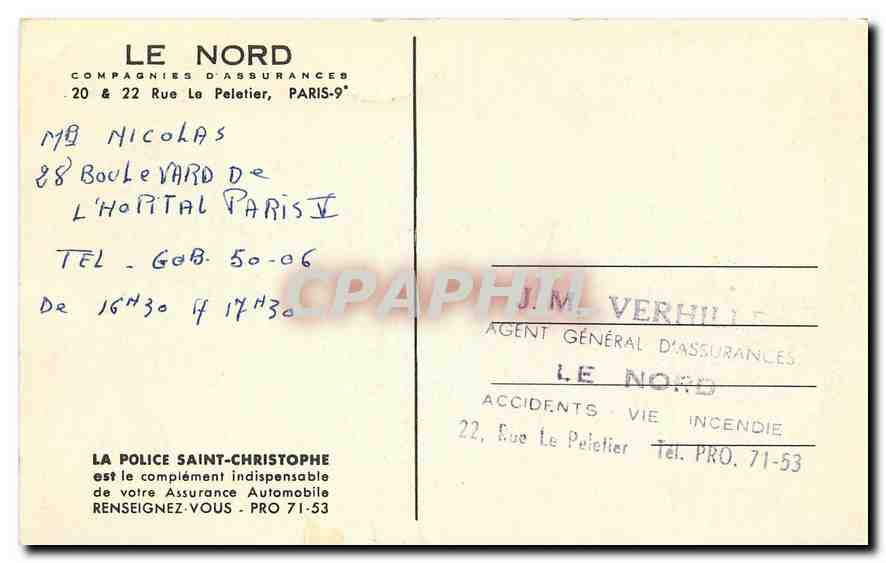 LE NORD
COMPAGNIES D'ASSURANCES
20 & 22 Rue Le Peletier, PARIS-9e
NICOLAS
28 BOULEVARD De
L'HOPITAL PARIS V
TEL - GOB. 50-06
De 16H30 à 17H30
LA POLICE SAINT-CHRISTOPHE
est le complément indispensable
de votre Assurance Automobile
RENSEIGNEZ-VOUS - PRO 71-53
CPAPHIL
J. M. VERHILLE
AGENT GÉNÉRAL D'ASSURANCES
LE NORD
ACCIDENTS - VIE INCENDIE
22, Rue Le Peletier Tél. PRO. 71-53